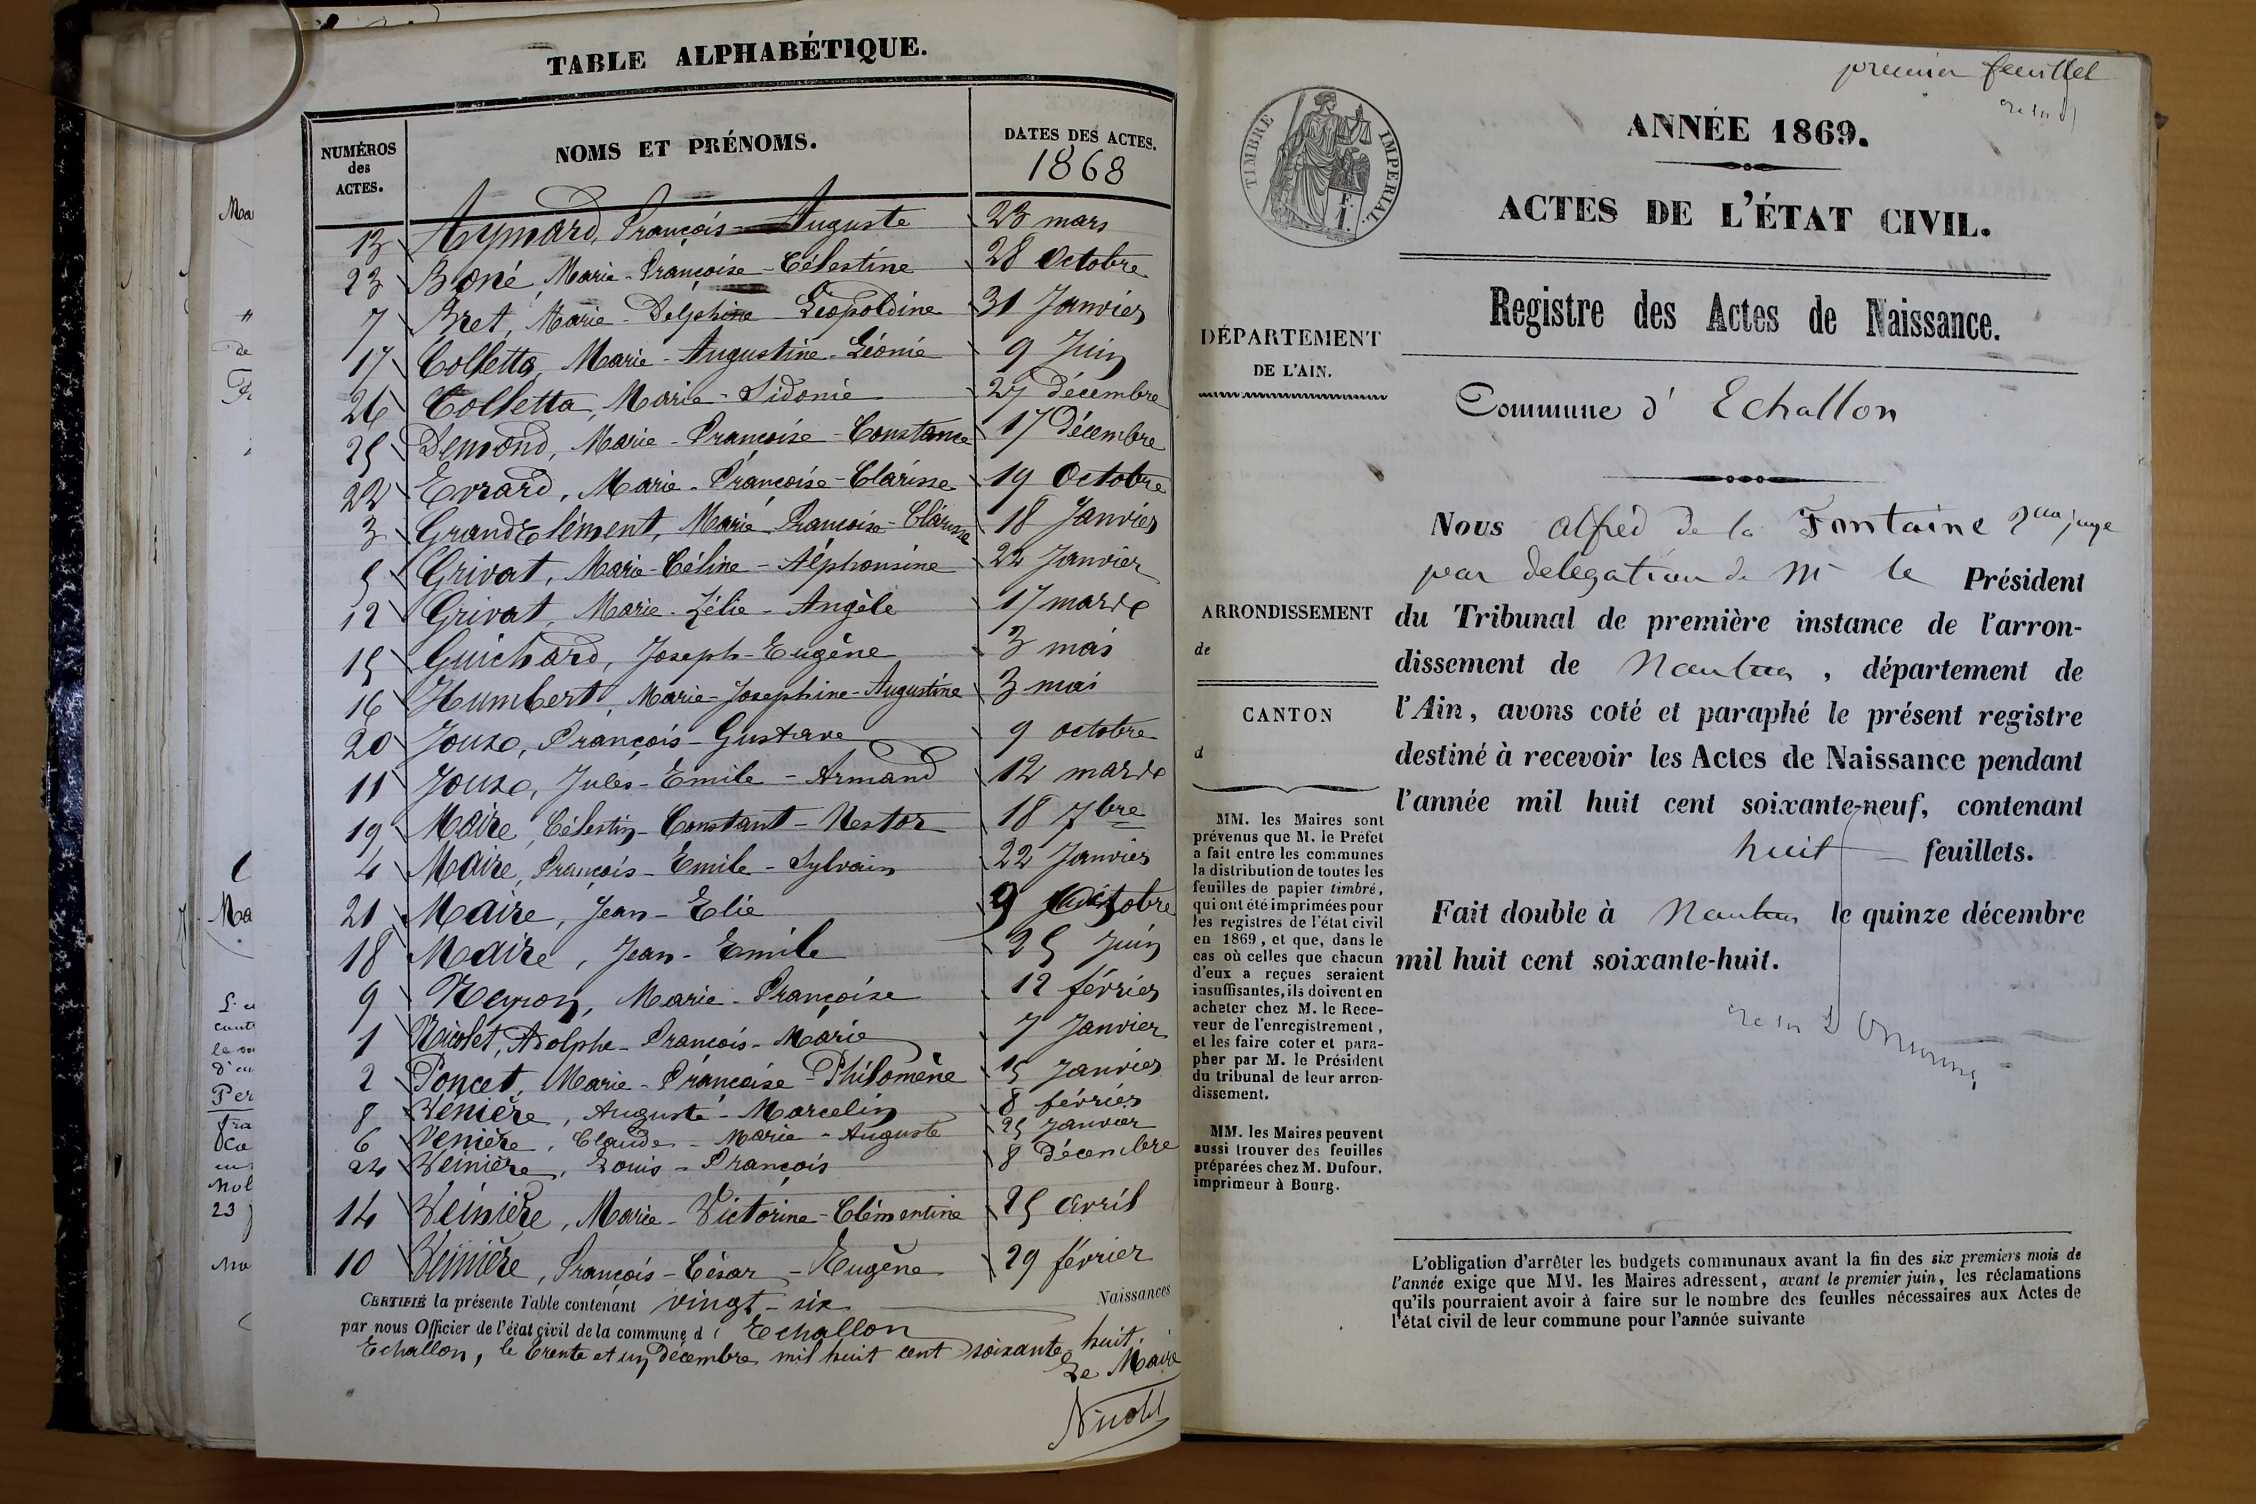 TABLE ALPHABÉTIQUE.
NUMÉROS des ACTES.
NOMS ET PRÉNOMS.
DATES DES ACTES.
1868
13 Aymard, François-Auguste 23 mars
23 Boné, Marie-Françoise-Célestine 28 Octobre
7 Bret, Marie-Delphine-Léopoldine 31 Janvier
17 Colletta, Marie-Augustine-Léonie 9 Juin
26 Colletta, Marie-Sidonie 27 décembre
25 Demond, Marie-Françoise-Constance 17 décembre
22 Evrard, Marie-Françoise-Clarisse 19 Octobre
3 GrandClément, Marie-Françoise-Clarisse 18 Janvier
5 Grivat, Marie-Céline-Alphonsine 22 Janvier
12 Grivat, Marie-Zélie-Angèle 17 mars
15 Guichard, Joseph-Eugène 3 mai
16 Humbert, Marie-Josephine-Augustine 3 mai
20 Joux, François-Gustave 9 octobre
11 Joux, Jules-Emile-Armand 12 mars
19 Maire, Célestin-Constant-Nestor 18 7bre
4 Maire, François-Emile-Sylvain 22 Janvier
21 Maire, Jean-Elie 9 Octobre
18 Maire, Jean-Emile 25 Juin
9 Neyron, Marie-Françoise 12 février
1 Nicolet, Adolphe-François-Marie 7 Janvier
2 Poncet, Marie-Françoise-Philomène 15 Janvier
8 Venière, Auguste-Marcelin 8 février
6 Venière, Claude-Marie-Auguste 25 Janvier
24 Veinière, Louis-François 8 Décembre
14 Veinière, Marie-Victorine-Clémentine 25 avril
10 Veinière, François-César-Eugène 29 février
CERTIFIÉ la présente Table contenant vingt-six Naissances
par nous Officier de l'état civil de la commune d' Echallon
Echallon, le trente et un décembre mil huit cent soixante huit.
Le Maire
Nicolet
premier feuillet
TIMBRE IMPÉRIAL.
ANNÉE 1869.
ACTES DE L'ÉTAT CIVIL.
Registre des Actes de Naissance.
DÉPARTEMENT
DE L'AIN.
ARRONDISSEMENT
de
CANTON
d
MM. les Maires sont
prévenus que M. le Préfet
a fait entre les communes
la distribution de toutes les
feuilles de papier timbré,
qui ont été imprimées pour
les registres de l'état civil
en 1869, et que, dans le
cas où celles que chacun
d'eux a reçues seraient
insuffisantes, ils doivent en
acheter chez M. le Rece-
veur de l'enregistrement,
et les faire coter et para-
pher par M. le Président
du tribunal de leur arron-
dissement.
MM. les Maires peuvent
aussi trouver des feuilles
préparées chez M. Dufour,
imprimeur à Bourg.
Commune d' Echallon
Nous alfred de la Fontaine juge
par delegation de Mr le Président
du Tribunal de première instance de l'arron-
dissement de Nantua, département de
l'Ain, avons coté et paraphé le présent registre
destiné à recevoir les Actes de Naissance pendant
l'année mil huit cent soixante-neuf, contenant
huit feuillets.
Fait double à Nantua le quinze décembre
mil huit cent soixante-huit.
L'obligation d'arrêter les budgets communaux avant la fin des six premiers mois de
l'année exige que MM. les Maires adressent, avant le premier juin, les réclamations
qu'ils pourraient avoir à faire sur le nombre des feuilles nécessaires aux Actes de
l'état civil de leur commune pour l'année suivante